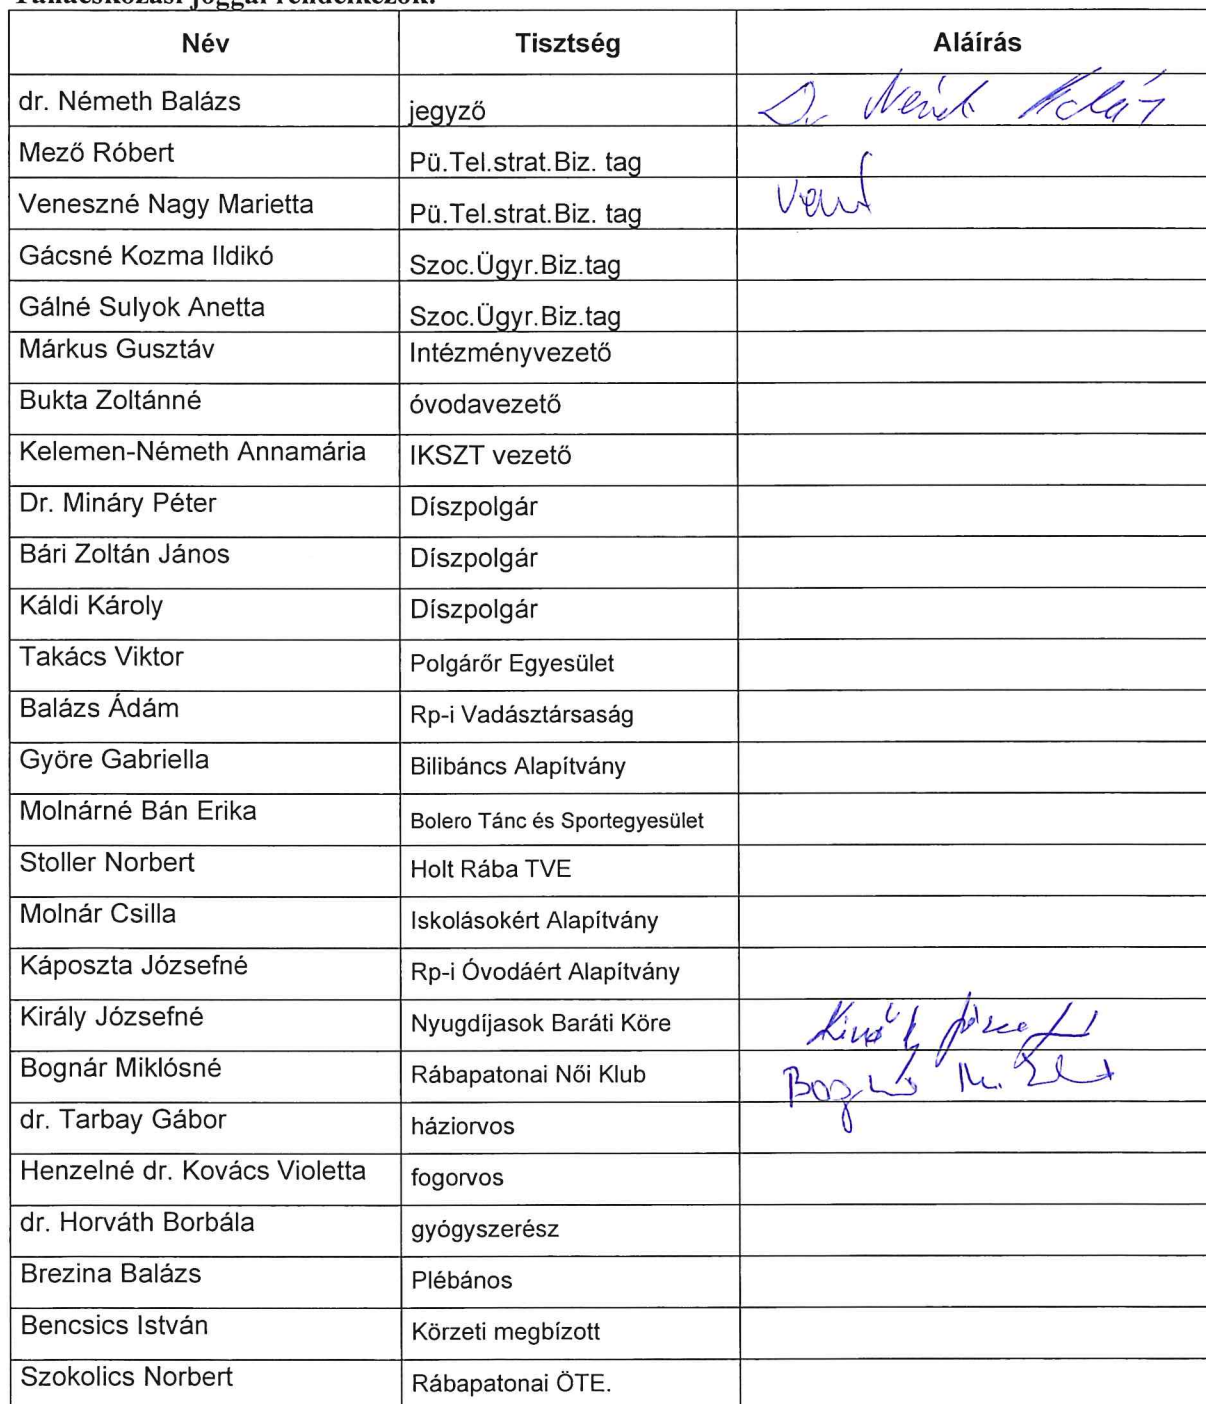 Tanácskozási joggal rendelkezők:
Név Tisztség Aláírás
dr. Németh Balázs jegyző Dr Németh Balázs
Mező Róbert Pü.Tel.strat.Biz. tag
Veneszné Nagy Marietta Pü.Tel.strat.Biz. tag
Gácsné Kozma Ildikó Szoc.Ügyr.Biz.tag
Gálné Sulyok Anetta Szoc.Ügyr.Biz.tag
Márkus Gusztáv Intézményvezető
Bukta Zoltánné óvodavezető
Kelemen-Németh Annamária IKSZT vezető
Dr. Mináry Péter Díszpolgár
Bári Zoltán János Díszpolgár
Káldi Károly Díszpolgár
Takács Viktor Polgárőr Egyesület
Balázs Ádám Rp-i Vadásztársaság
Györe Gabriella Bilibáncs Alapítvány
Molnárné Bán Erika Bolero Tánc és Sportegyesület
Stoller Norbert Holt Rába TVE
Molnár Csilla Iskolásokért Alapítvány
Káposzta Józsefné Rp-i Óvodáért Alapítvány
Király Józsefné Nyugdíjasok Baráti Köre Király Józsefné
Bognár Miklósné Rábapatonai Női Klub Bognár M.
dr. Tarbay Gábor háziorvos
Henzelné dr. Kovács Violetta fogorvos
dr. Horváth Borbála gyógyszerész
Brezina Balázs Plébános
Bencsics István Körzeti megbízott
Szokolics Norbert Rábapatonai ÖTE.